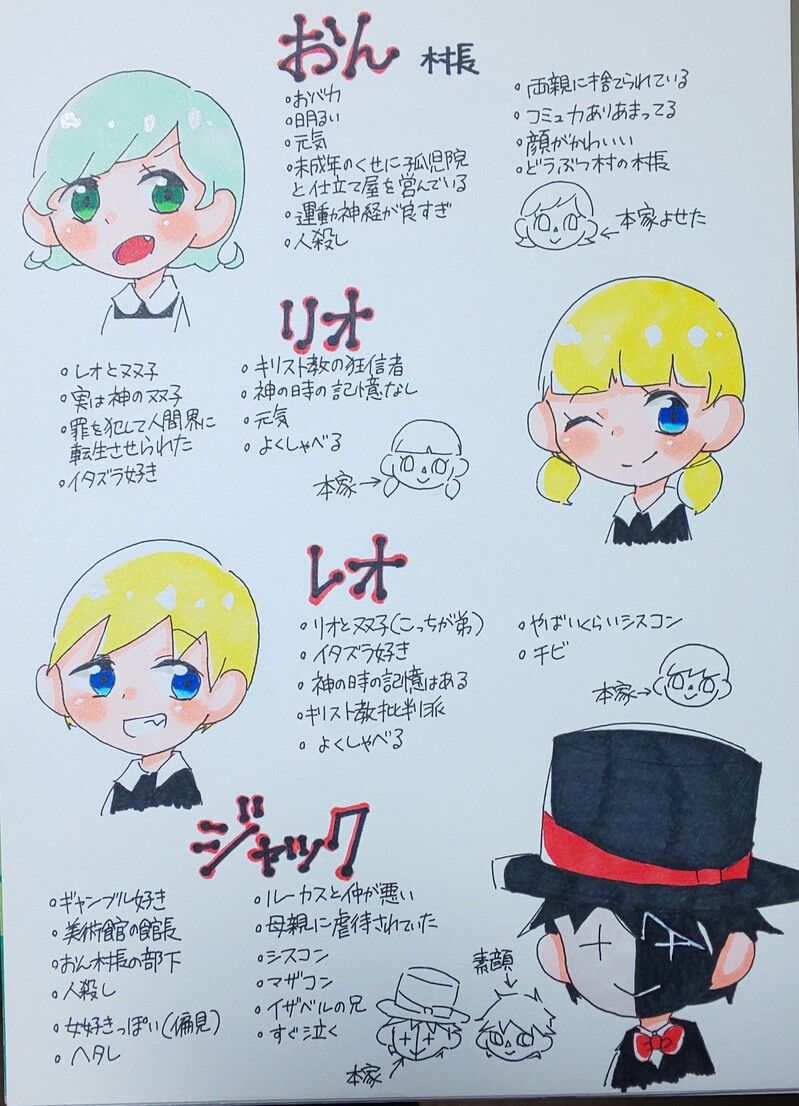 おん 村長
・おバカ
・明るい
・元気
・未成年のくせに孤児院
と仕立て屋を営んでいる
・運動神経が良すぎ
・人殺し
・両親に捨てられている
・コミュ力ありあまってる
・顔がかわいい
・どうぶつ村の村長
←本家よせた
リオ
・レオと双子
・実は神の双子
・罪を犯して人間界に
転生させられた
・イタズラ好き
・キリスト教の狂信者
・神の時の記憶なし
・元気
・よくしゃべる
本家→
レオ
・リオと双子(こっちが弟)
・イタズラ好き
・神の時の記憶はある
・キリスト教批判派
・よくしゃべる
・やばいくらいシスコン
・チビ
本家→
ジャック
・ギャンブル好き
・美術館の館長
・おん村長の部下
・人殺し
・女好きっぽい(偏見)
・ヘタレ
・ルーカスと仲が悪い
・母親に虐待されていた
・シスコン
・マザコン
・イザベルの兄
・すぐ泣く
素顔
本家